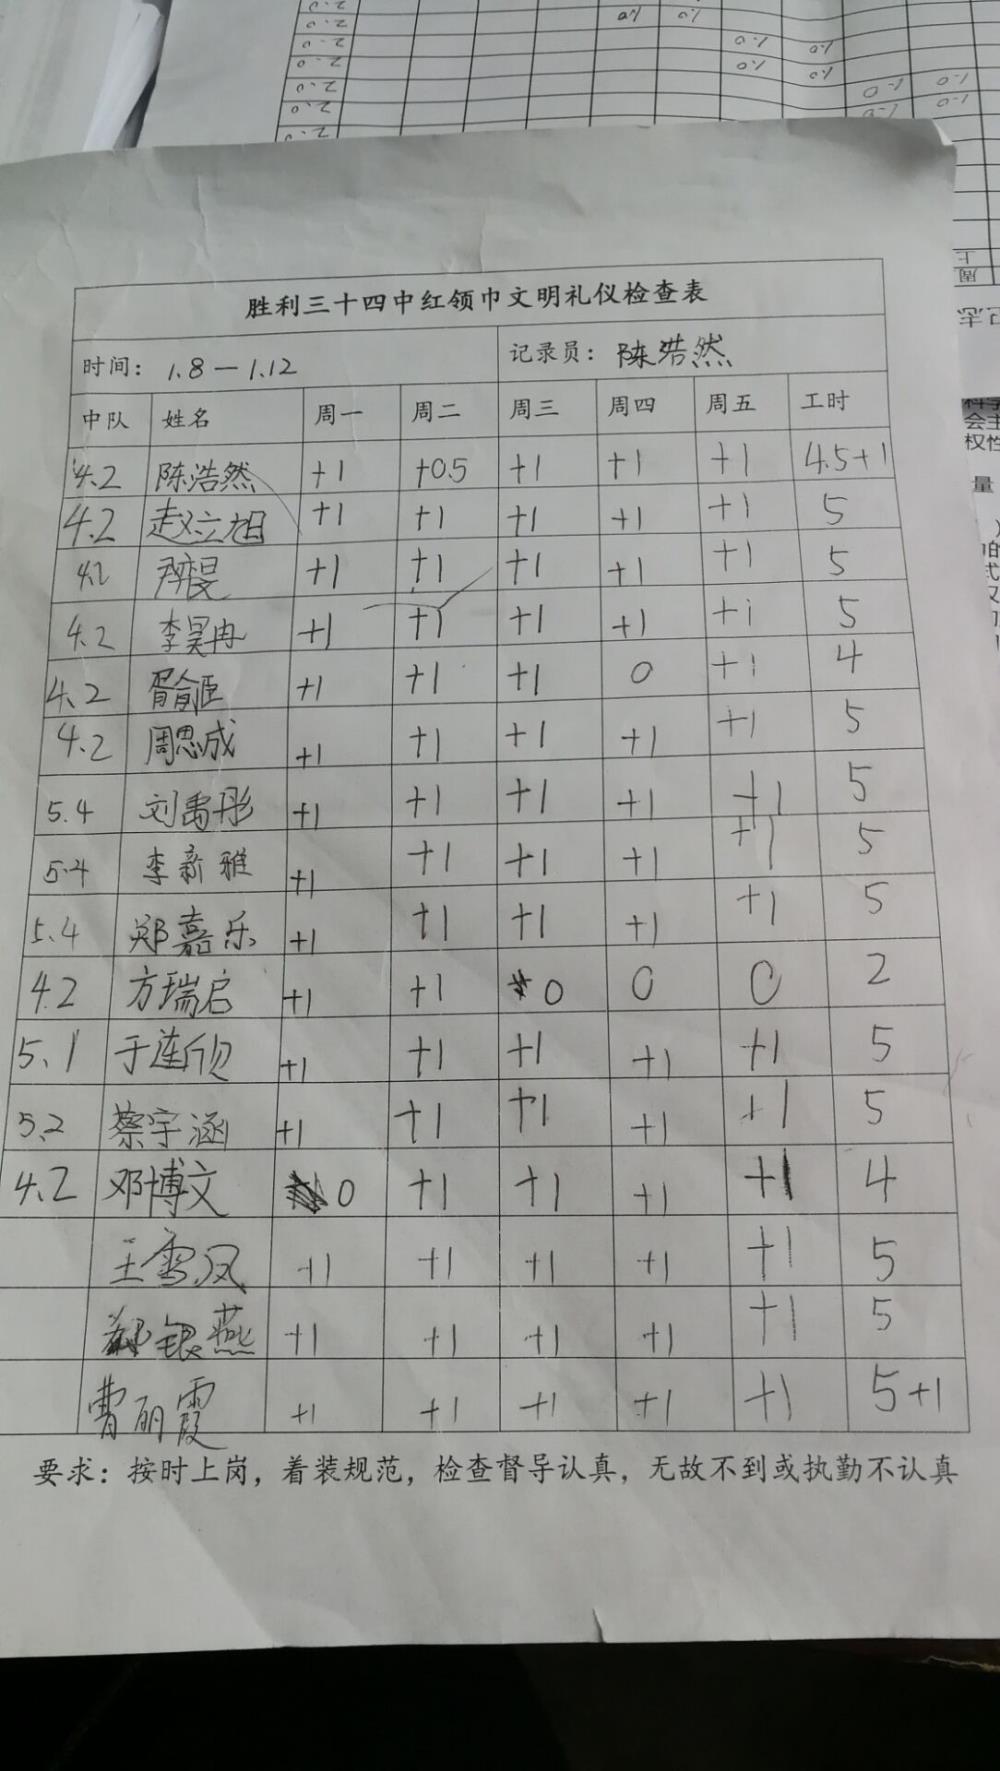 胜利三十四中红领巾文明礼仪检查表
时间: 1.8 — 1.12 记录员: 陈浩然
中队 姓名 周一 周二 周三 周四 周五 工时
4.2 陈浩然 +1 +0.5 +1 +1 +1 4.5+1
4.2 赵立旭 +1 +1 +1 +1 +1 5
4.2 +1 +1 +1 +1 +1 5
4.2 李昊冉 +1 +1 +1 +1 +1 5
4.2 +1 +1 +1 0 +1 4
4.2 周思成 +1 +1 +1 +1 +1 5
5.4 刘禹彤 +1 +1 +1 +1 +1 5
5.4 李新雅 +1 +1 +1 +1 +1 5
5.4 郑嘉乐 +1 +1 +1 +1 +1 5
4.2 方瑞启 +1 +1 0 0 0 2
5.1 于连欣 +1 +1 +1 +1 +1 5
5.2 蔡宇涵 +1 +1 +1 +1 +1 5
4.2 邓博文 0 +1 +1 +1 +1 4
王雪凤 +1 +1 +1 +1 +1 5
银燕 +1 +1 +1 +1 +1 5
曹丽霞 +1 +1 +1 +1 +1 5+1
要求: 按时上岗, 着装规范, 检查督导认真, 无故不到或执勤不认真